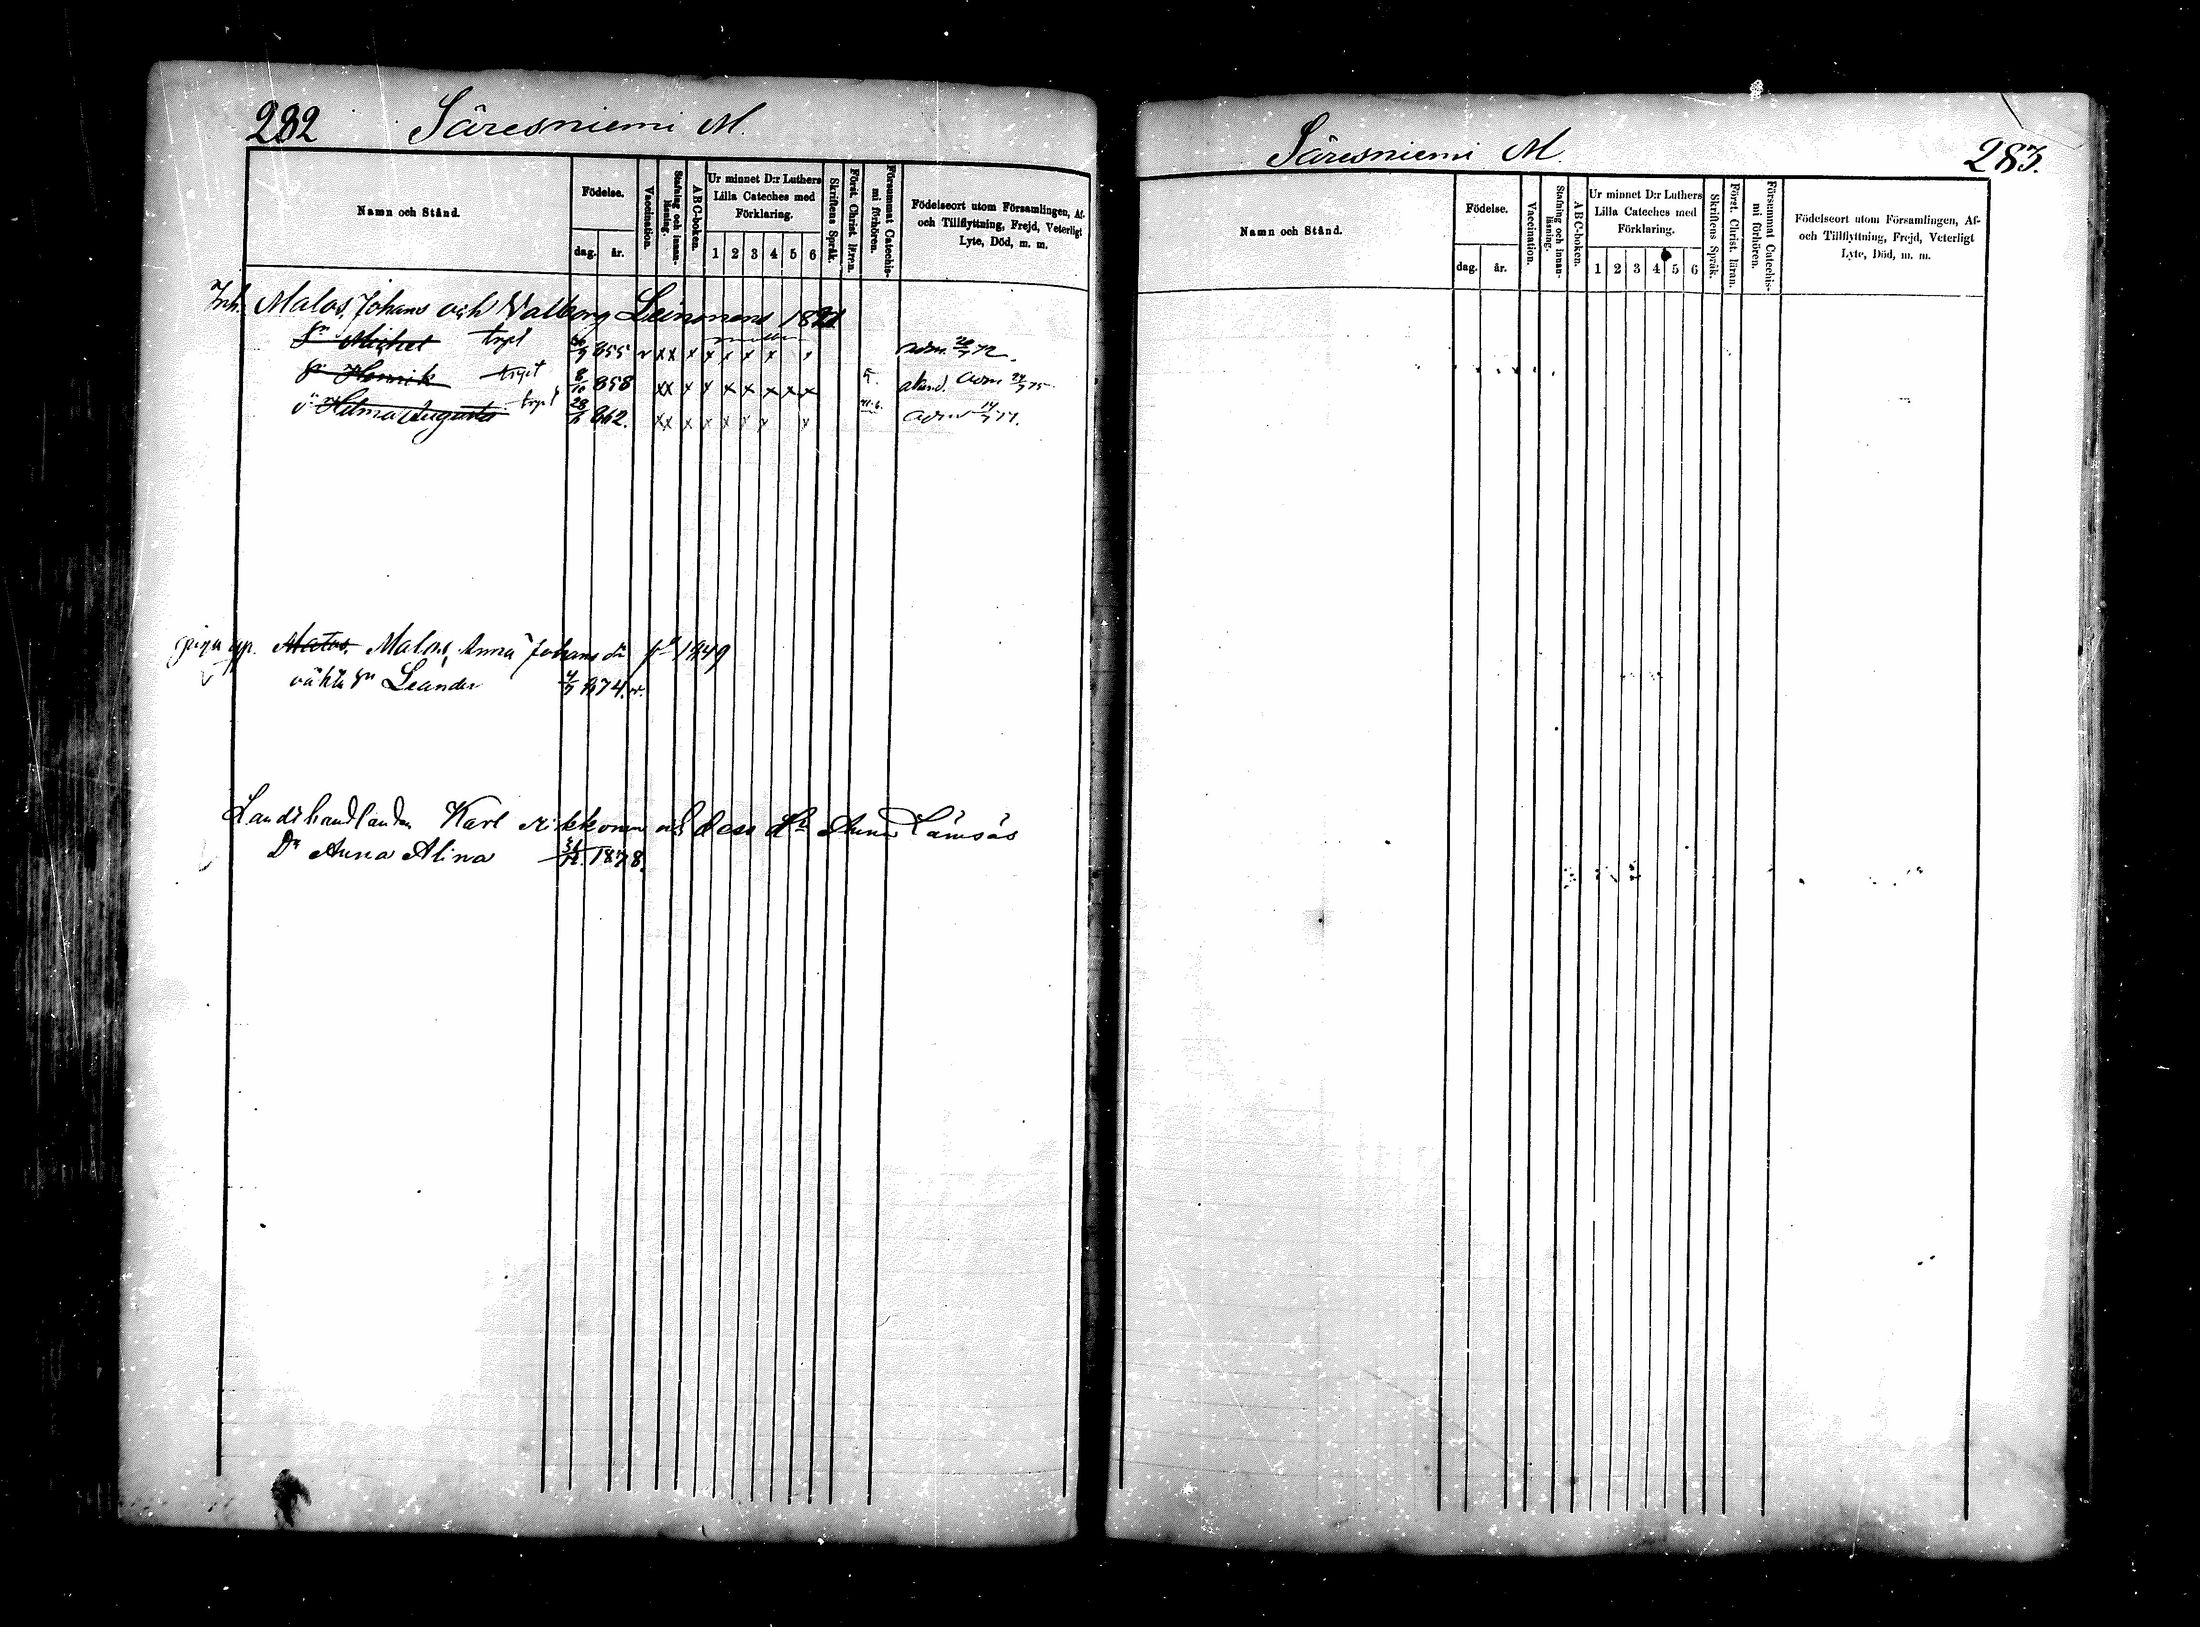 282 Säresniemi M.
Namn och Stånd.
Födelse.
dag. år.
Vaccination.
Stafning och innan-läsning.
ABC-boken.
Ur minnet D:r Luthers
Lilla Cateches med
Förklaring.
1 2 3 4 5 6
Skriftens Språk.
Först. Christ. läran.
Försummat Catechis-
mi förhören.
Födelseort utom Församlingen, Af-
och Tillflyttning, Frejd, Veterligt
Lyte, Död, m. m.
Inh. Malos, Johans och Valborg Leinonens
sn Michel 855 v xx x x x x x x adm. 72.
sn Henrik 8/10 858 xx x x x x x x x 5. adm
dr Hilma Augusta 862. xx x x x x x x
Malos Malos, Anna Johans dr 1849
oäkta sn Leander 874. v.
Landthandlanden Karl och dess Anna Lämsäs
Dr Anna Alina 1878.
Säresniemi M. 283.
Namn och Stånd.
Födelse.
dag. år.
Vaccination.
Stafning och innan-
läsning.
ABC-boken.
Ur minnet D:r Luthers
Lilla Cateches med
Förklaring.
1 2 3 4 5 6
Skriftens Språk.
Först. Christ. läran.
Försummat Catechis-
mi förhören.
Födelseort utom Församlingen, Af-
och Tillflyttning, Frejd, Veterligt
Lyte, Död, m. m.